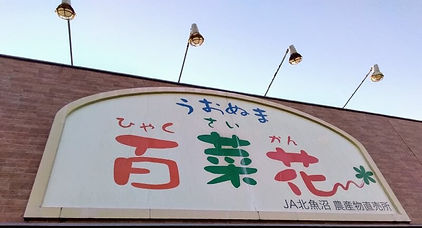 うおぬま
ひゃく さい かん
百菜花ん
JA北魚沼 農産物直売所